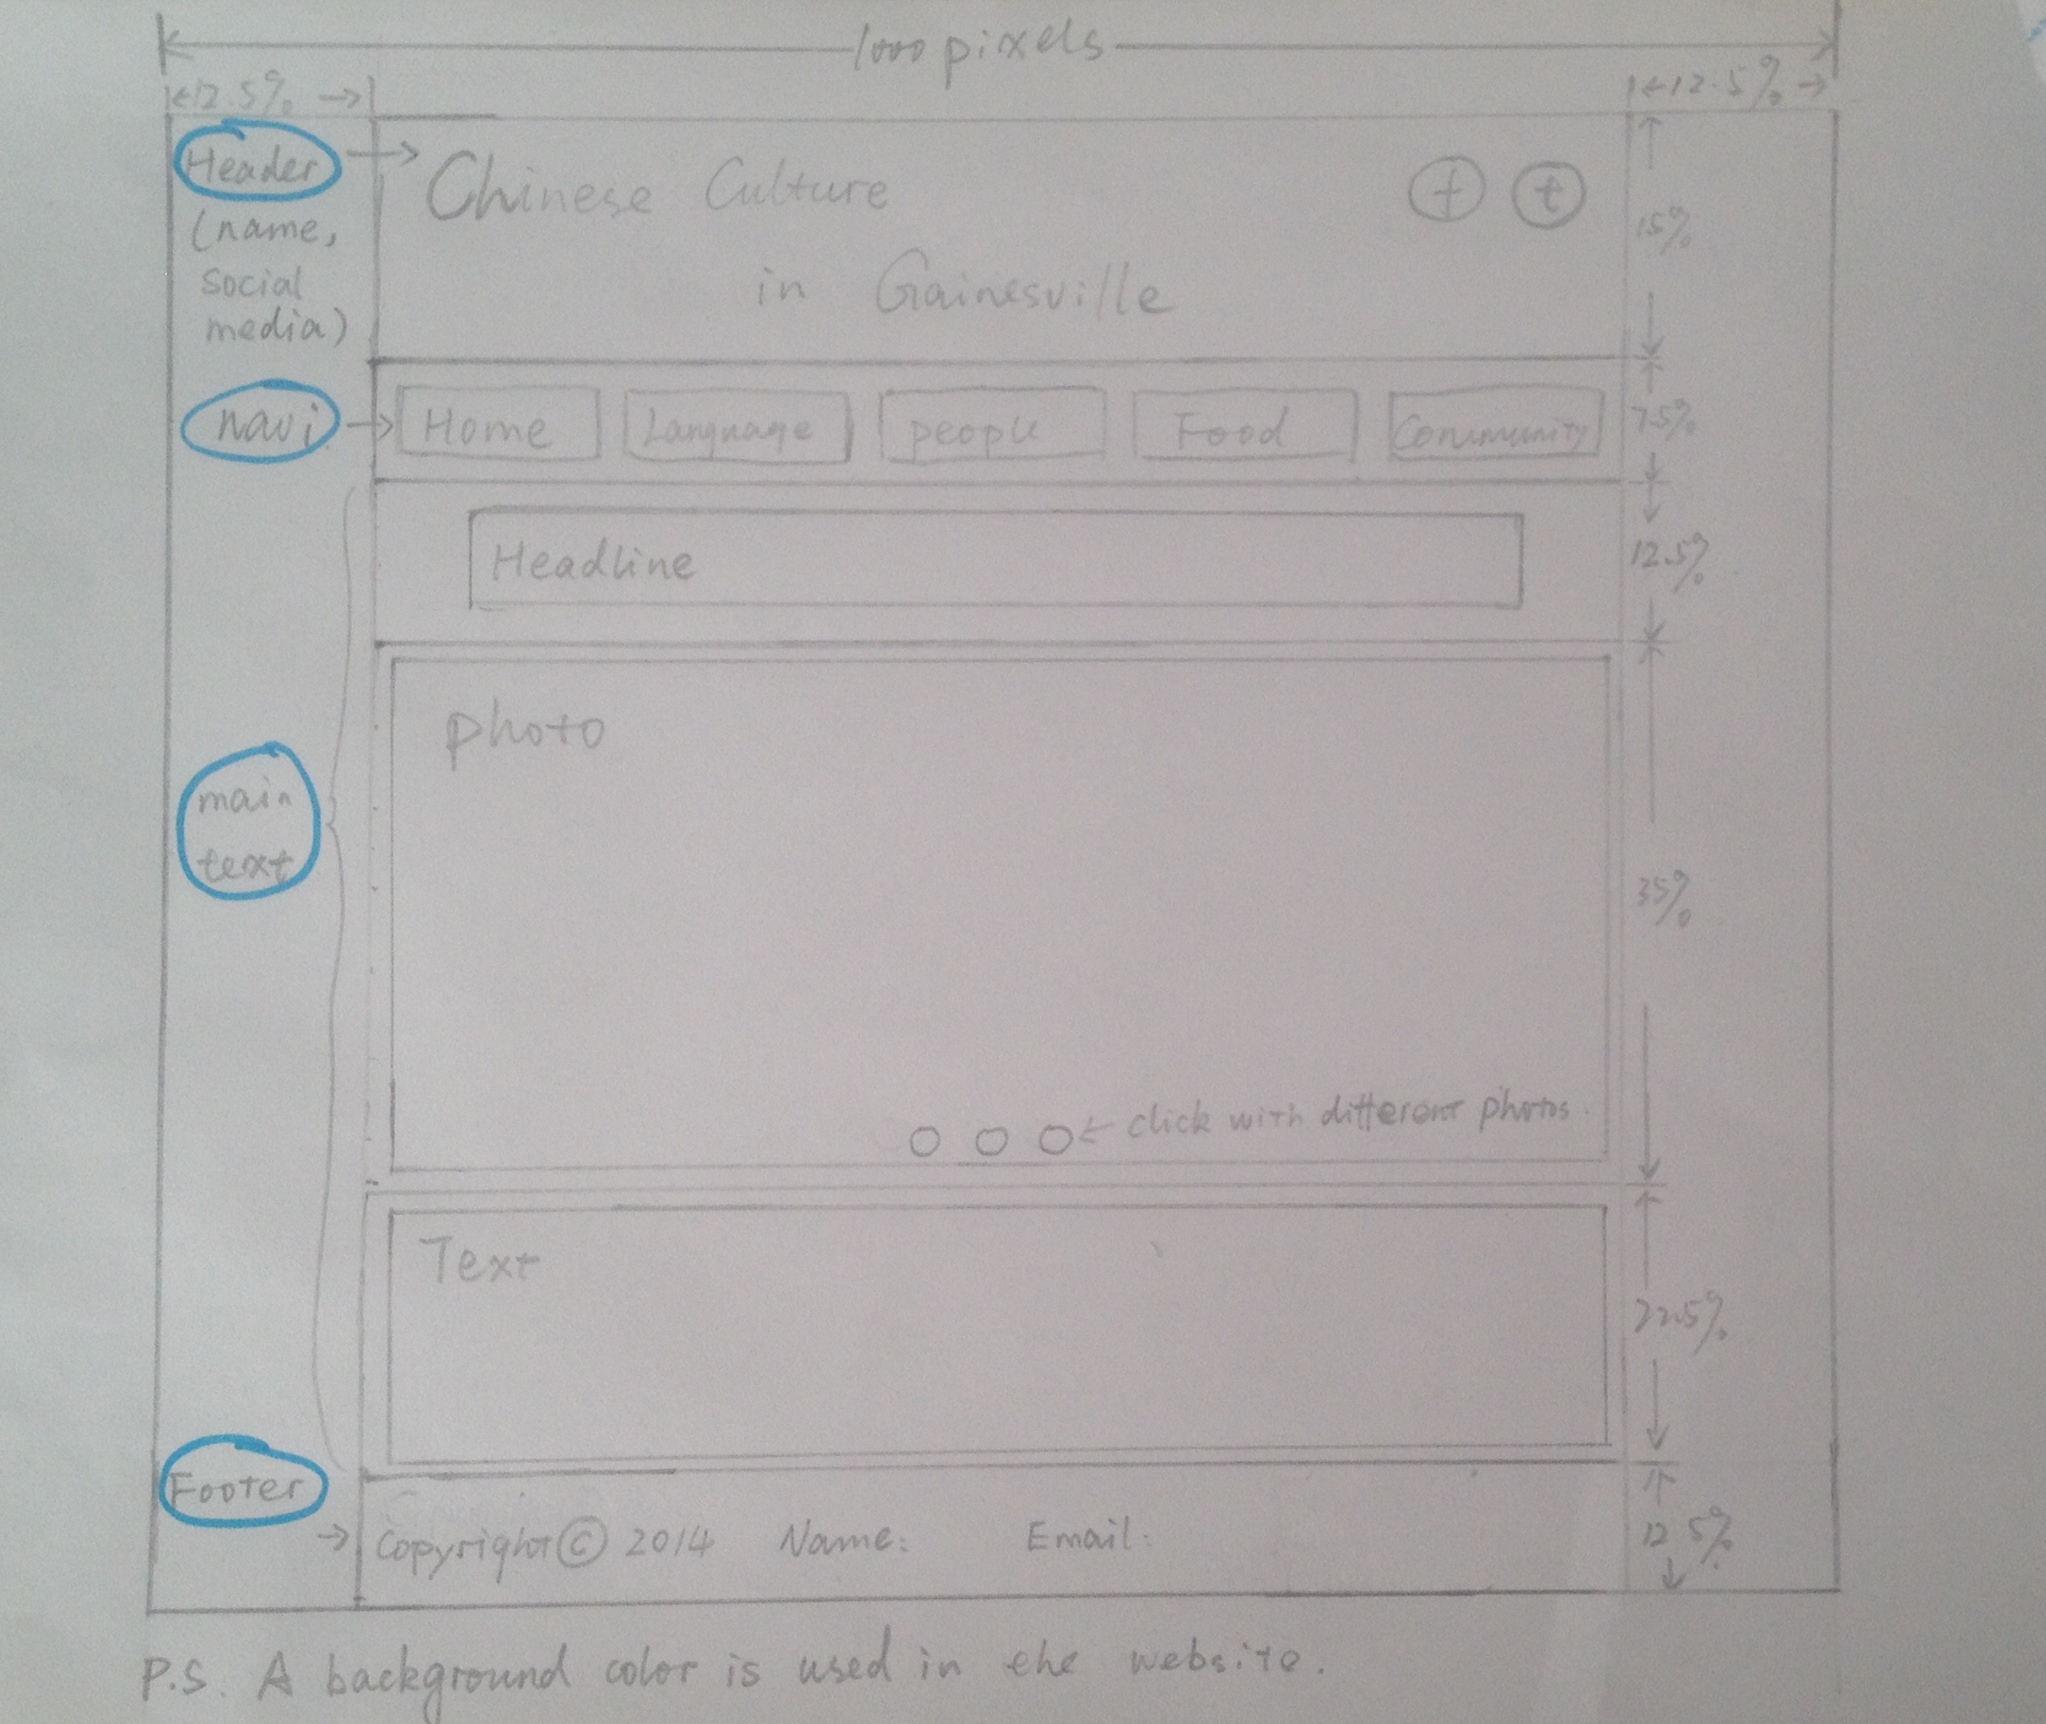 1000 pixels
12.5%
12.5%
Header
(name,
social
media)
Chinese Culture
in Gainesville
f t
15%
navi
Home Language people Food Community
7.5%
Headline
12.5%
photo
main
text
35%
click with different photos.
Text
22.5%
Footer
Copyright © 2014 Name: Email:
12.5%
P.S. A background color is used in the website.